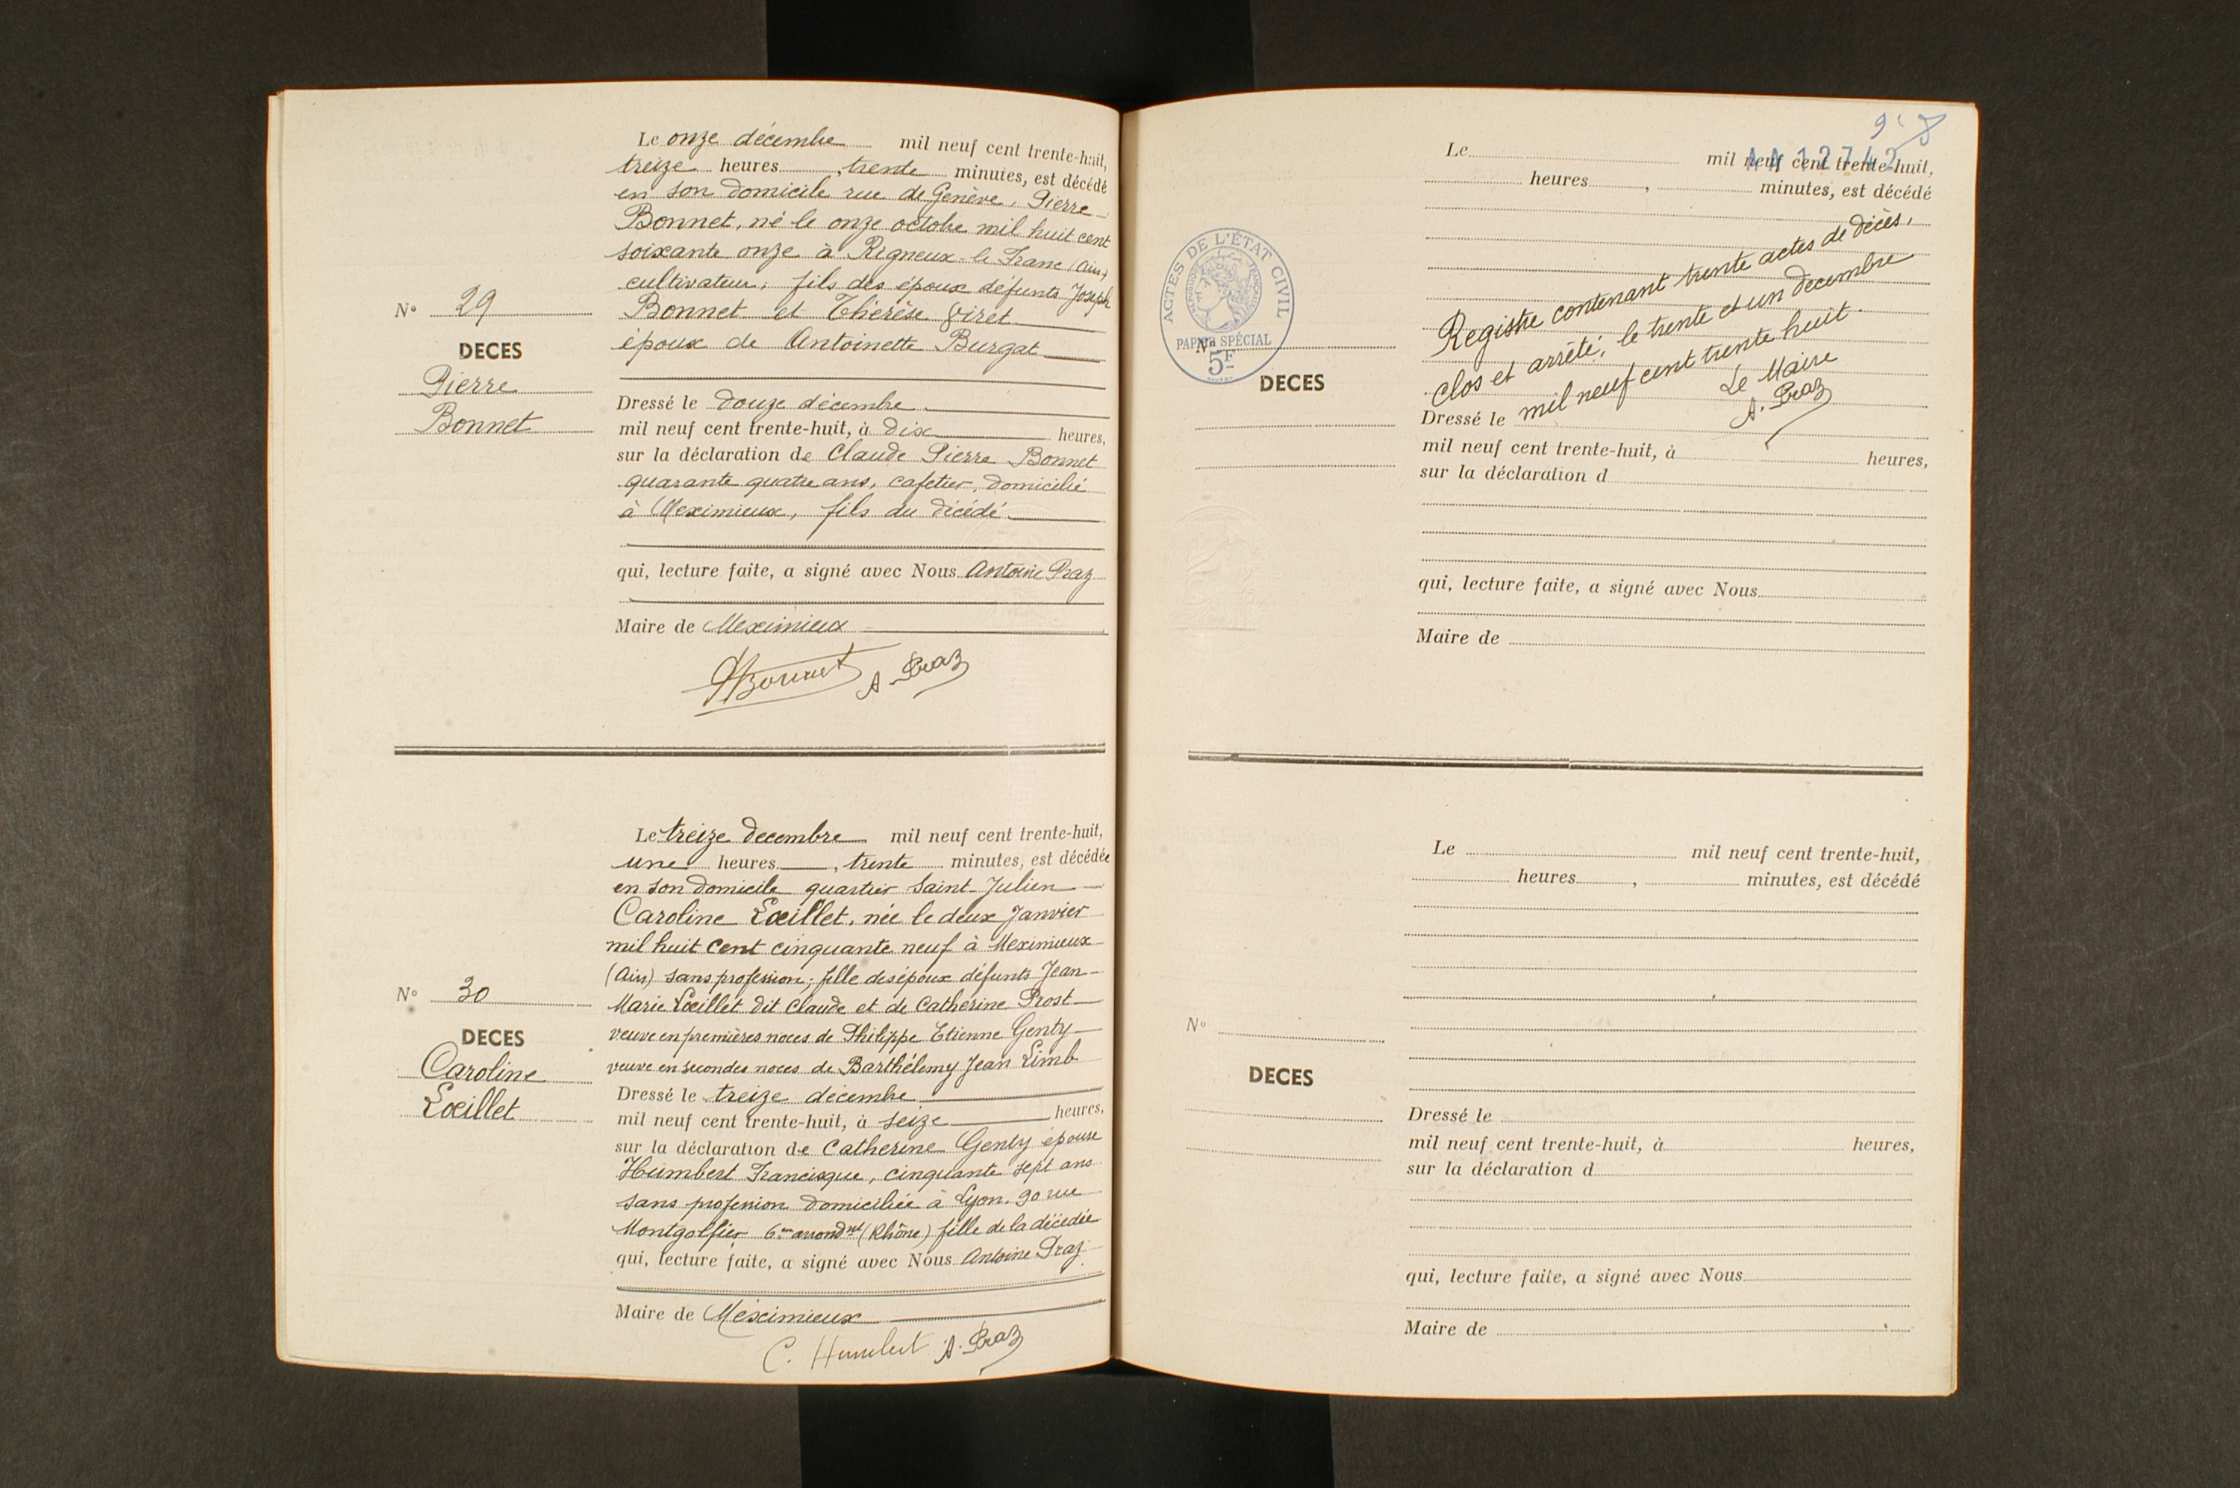 Le onze décembre mil neuf cent trente-huit,
treize heures, trente minutes, est décédé
en son domicile rue de Genève, Pierre
Bonnet, né le onze octobre mil huit cent
soixante onze à Rigneux-le-Franc (Ain)
cultivateur, fils des époux défunts Joseph
Bonnet et Thérèse Viret
époux de Antoinette Burgat
N° 29
DECES
Pierre
Bonnet
Dressé le douze décembre
mil neuf cent trente-huit, à dix heures,
sur la déclaration de Claude Pierre Bonnet
quarante quatre ans, cafetier, domicilié
à Meximieux, fils du décédé
qui, lecture faite, a signé avec Nous Antoine Praz
Maire de Meximieux
Bonnet A. Praz
Le treize decembre mil neuf cent trente-huit,
une heures, trente minutes, est décédée
en son domicile quartier Saint-Julien
Caroline Lœillet, née le deux Janvier
mil huit cent cinquante neuf à Meximieux
(Ain) sans profession; fille des époux défunts Jean-
Marie Lœillet dit Claude et de Catherine Prost
veuve en premières noces de Philippe Etienne Genty
veuve en secondes noces de Barthélemy Jean Limb
N° 30
DECES
Caroline
Lœillet
Dressé le treize décembre
mil neuf cent trente-huit, à seize heures,
sur la déclaration de Catherine Genty épouse
Humbert Francisque, cinquante sept ans
sans profession domiciliée à Lyon. 90 rue
Montgolfier 6me arrondnt (Rhône) fille de la décédée
qui, lecture faite, a signé avec Nous Antoine Praz
Maire de Meximieux
C. Humbert A. Praz
Le mil neuf cent trente-huit,
heures, minutes, est décédé
Registre contenant trente actes de décès,
clos et arrêté, le trente et un decembre
mil neuf cent trente huit.
Le Maire
A. Praz
ACTES DE L'ÉTAT CIVIL
PAPIER SPÉCIAL
5F
N°
DECES
Dressé le
mil neuf cent trente-huit, à heures,
sur la déclaration d
qui, lecture faite, a signé avec Nous
Maire de
Le mil neuf cent trente-huit,
heures, minutes, est décédé
N°
DECES
Dressé le
mil neuf cent trente-huit, à heures,
sur la déclaration d
qui, lecture faite, a signé avec Nous
Maire de